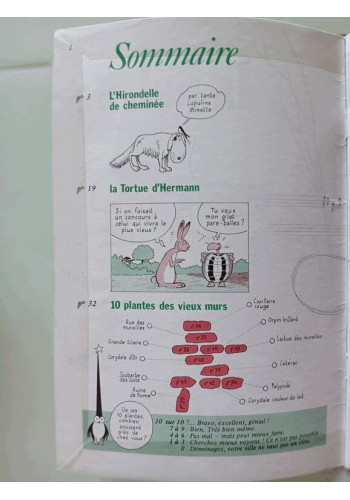 Sommaire
3
L'Hirondelle
de cheminée
par tante
Lupuline
Minette
19
la Tortue d'Hermann
Si on faisait
un concours à
celui qui vivra le
plus vieux ?
Tu veux
mon gilet
pare-balles ?
32
10 plantes des vieux murs
Capillaire
rouge
Rue des
murailles
Orpin brûlant
Grande Eclaire
Laitue des murailles
Corydale d'Or
Ceterac
Joubarbe
des toits
Polypode
Ruine
de Rome
Corydale couleur de lait
De ces
10 plantes,
combien
poussent
près de
chez vous ?
10 sur 10 ?... Bravo, excellent, génial !
7 à 9 : Bien. Très bien même.
4 à 6 : Pas mal – mais peut mieux faire.
1 à 3 : Cherchez mieux voyons ! Ce n'est pas possible
0 : Déménagez, votre ville ne vaut pas un clou.